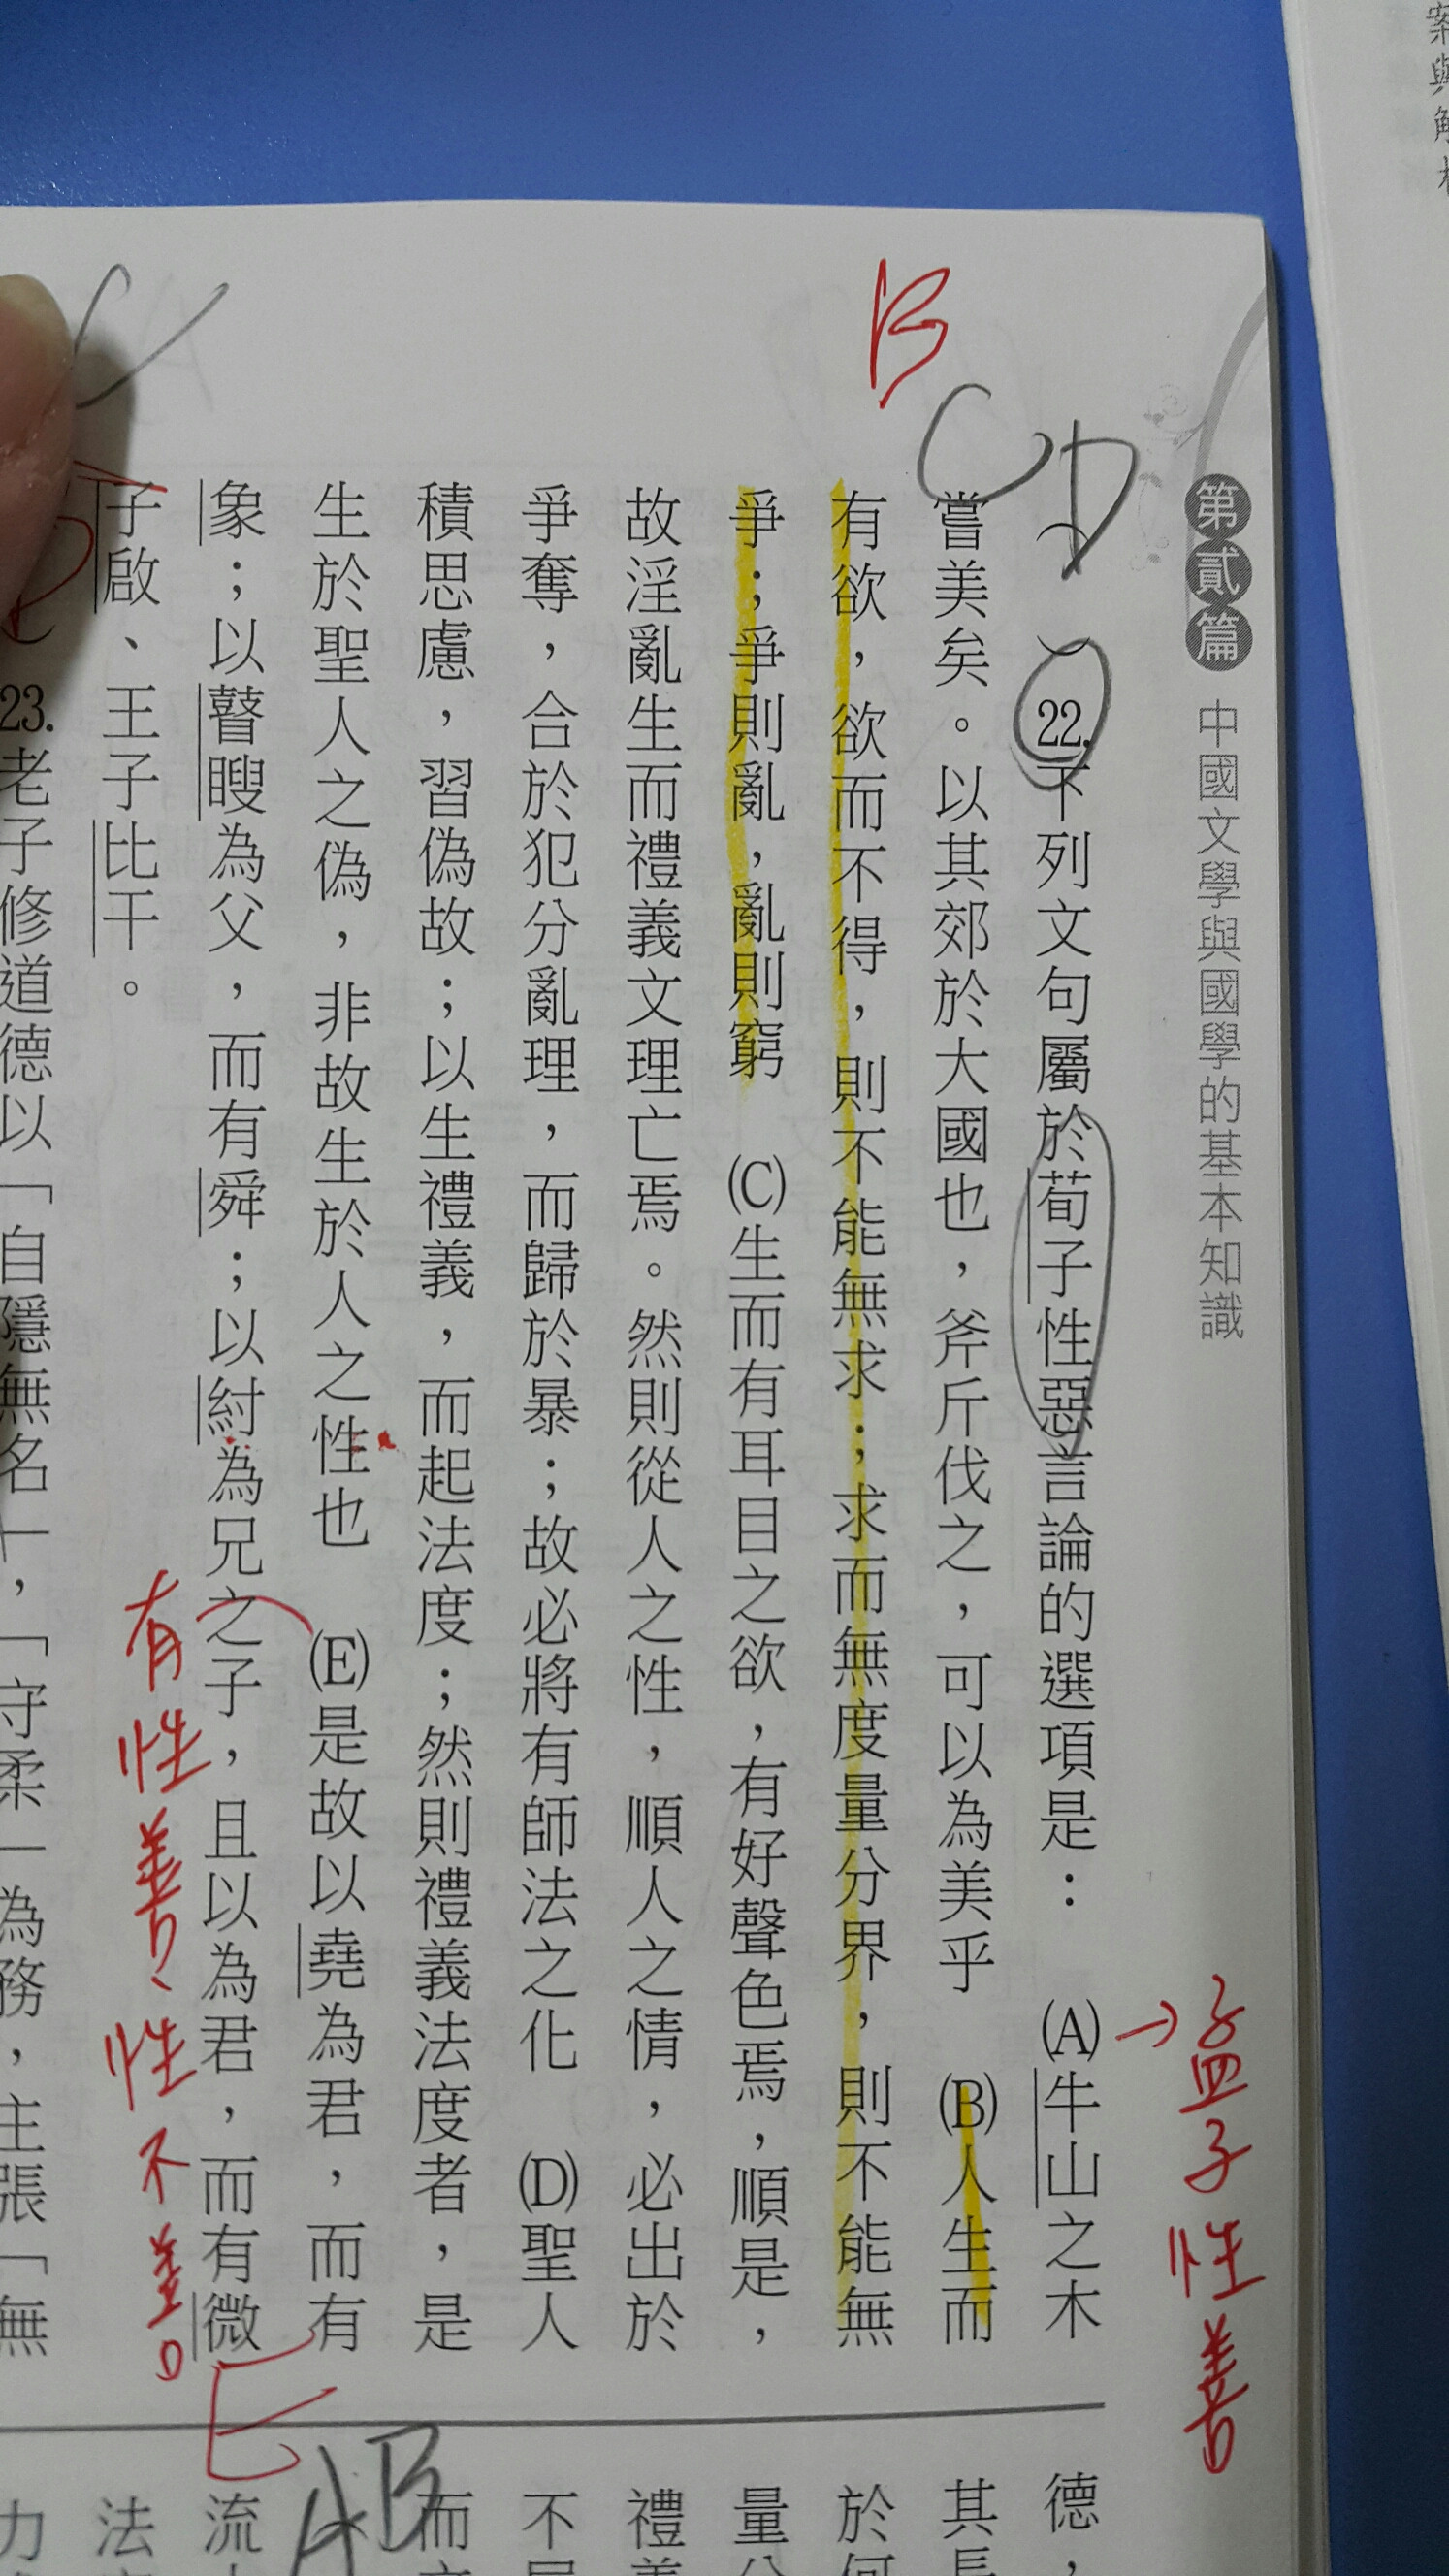 案與解
第貳篇 中國文學與國學的基本知識
孟子性善
B
CD
22.下列文句屬於荀子性惡言論的選項是： (A)牛山之木
嘗美矣。以其郊於大國也，斧斤伐之，可以為美乎 (B)人生而
有欲，欲而不得，則不能無求；求而無度量分界，則不能無
爭；爭則亂，亂則窮 (C)生而有耳目之欲，有好聲色焉，順是，
故淫亂生而禮義文理亡焉。然則從人之性，順人之情，必出於
爭奪，合於犯分亂理，而歸於暴；故必將有師法之化 (D)聖人
積思慮，習偽故；以生禮義，而起法度；然則禮義法度者，是
生於聖人之偽，非故生於人之性也 (E)是故以堯為君，而有
象；以瞽瞍為父，而有舜；以紂為兄之子，且以為君，而有微
子啟、王子比干。
有性善、性不善。
23.老子修道德以「自隱無名」，「守柔」為務，主張「無
E
AB
德，
其長
於何
量分
禮義
不
而
流
法
力